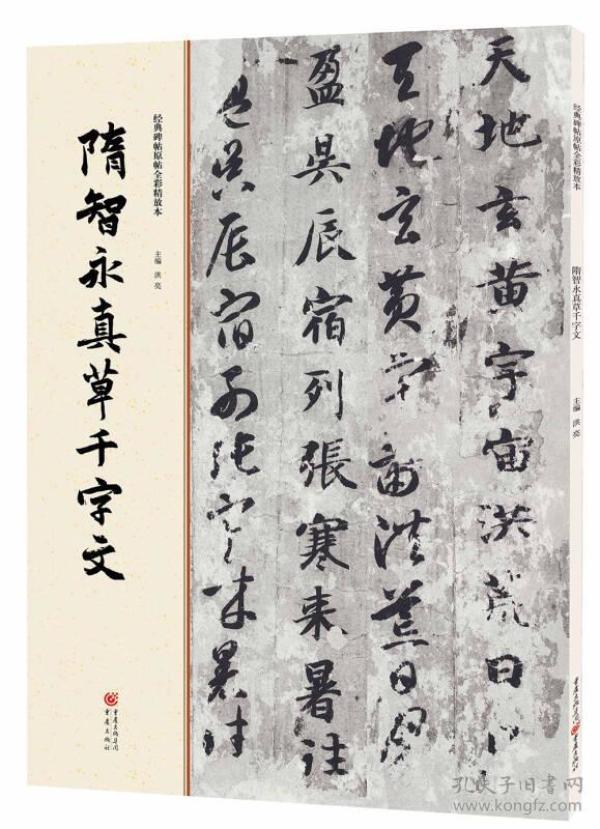 经典碑帖原帖全彩精放本
隋智永真草千字文
主编 洪亮
重庆出版集团
重庆出版社
天地玄黄宇宙洪荒日月
天地玄黄宇宙洪荒日月
盈昃辰宿列張寒来暑往
盈昃辰宿列張寒来暑往
经典碑帖原帖全彩精放本
隋智永真草千字文
主编 洪亮
重庆出版集团
重庆出版社
孔夫子旧书网
www.kongfz.com